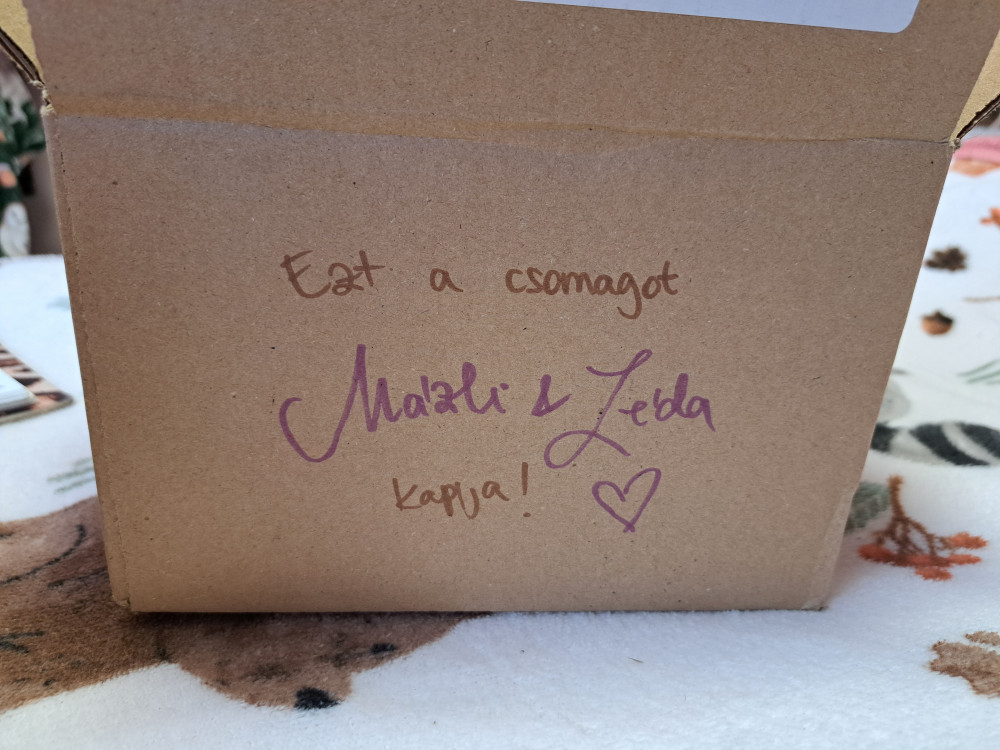 Ezt a csomagot
Mázli & Léda
kapja!